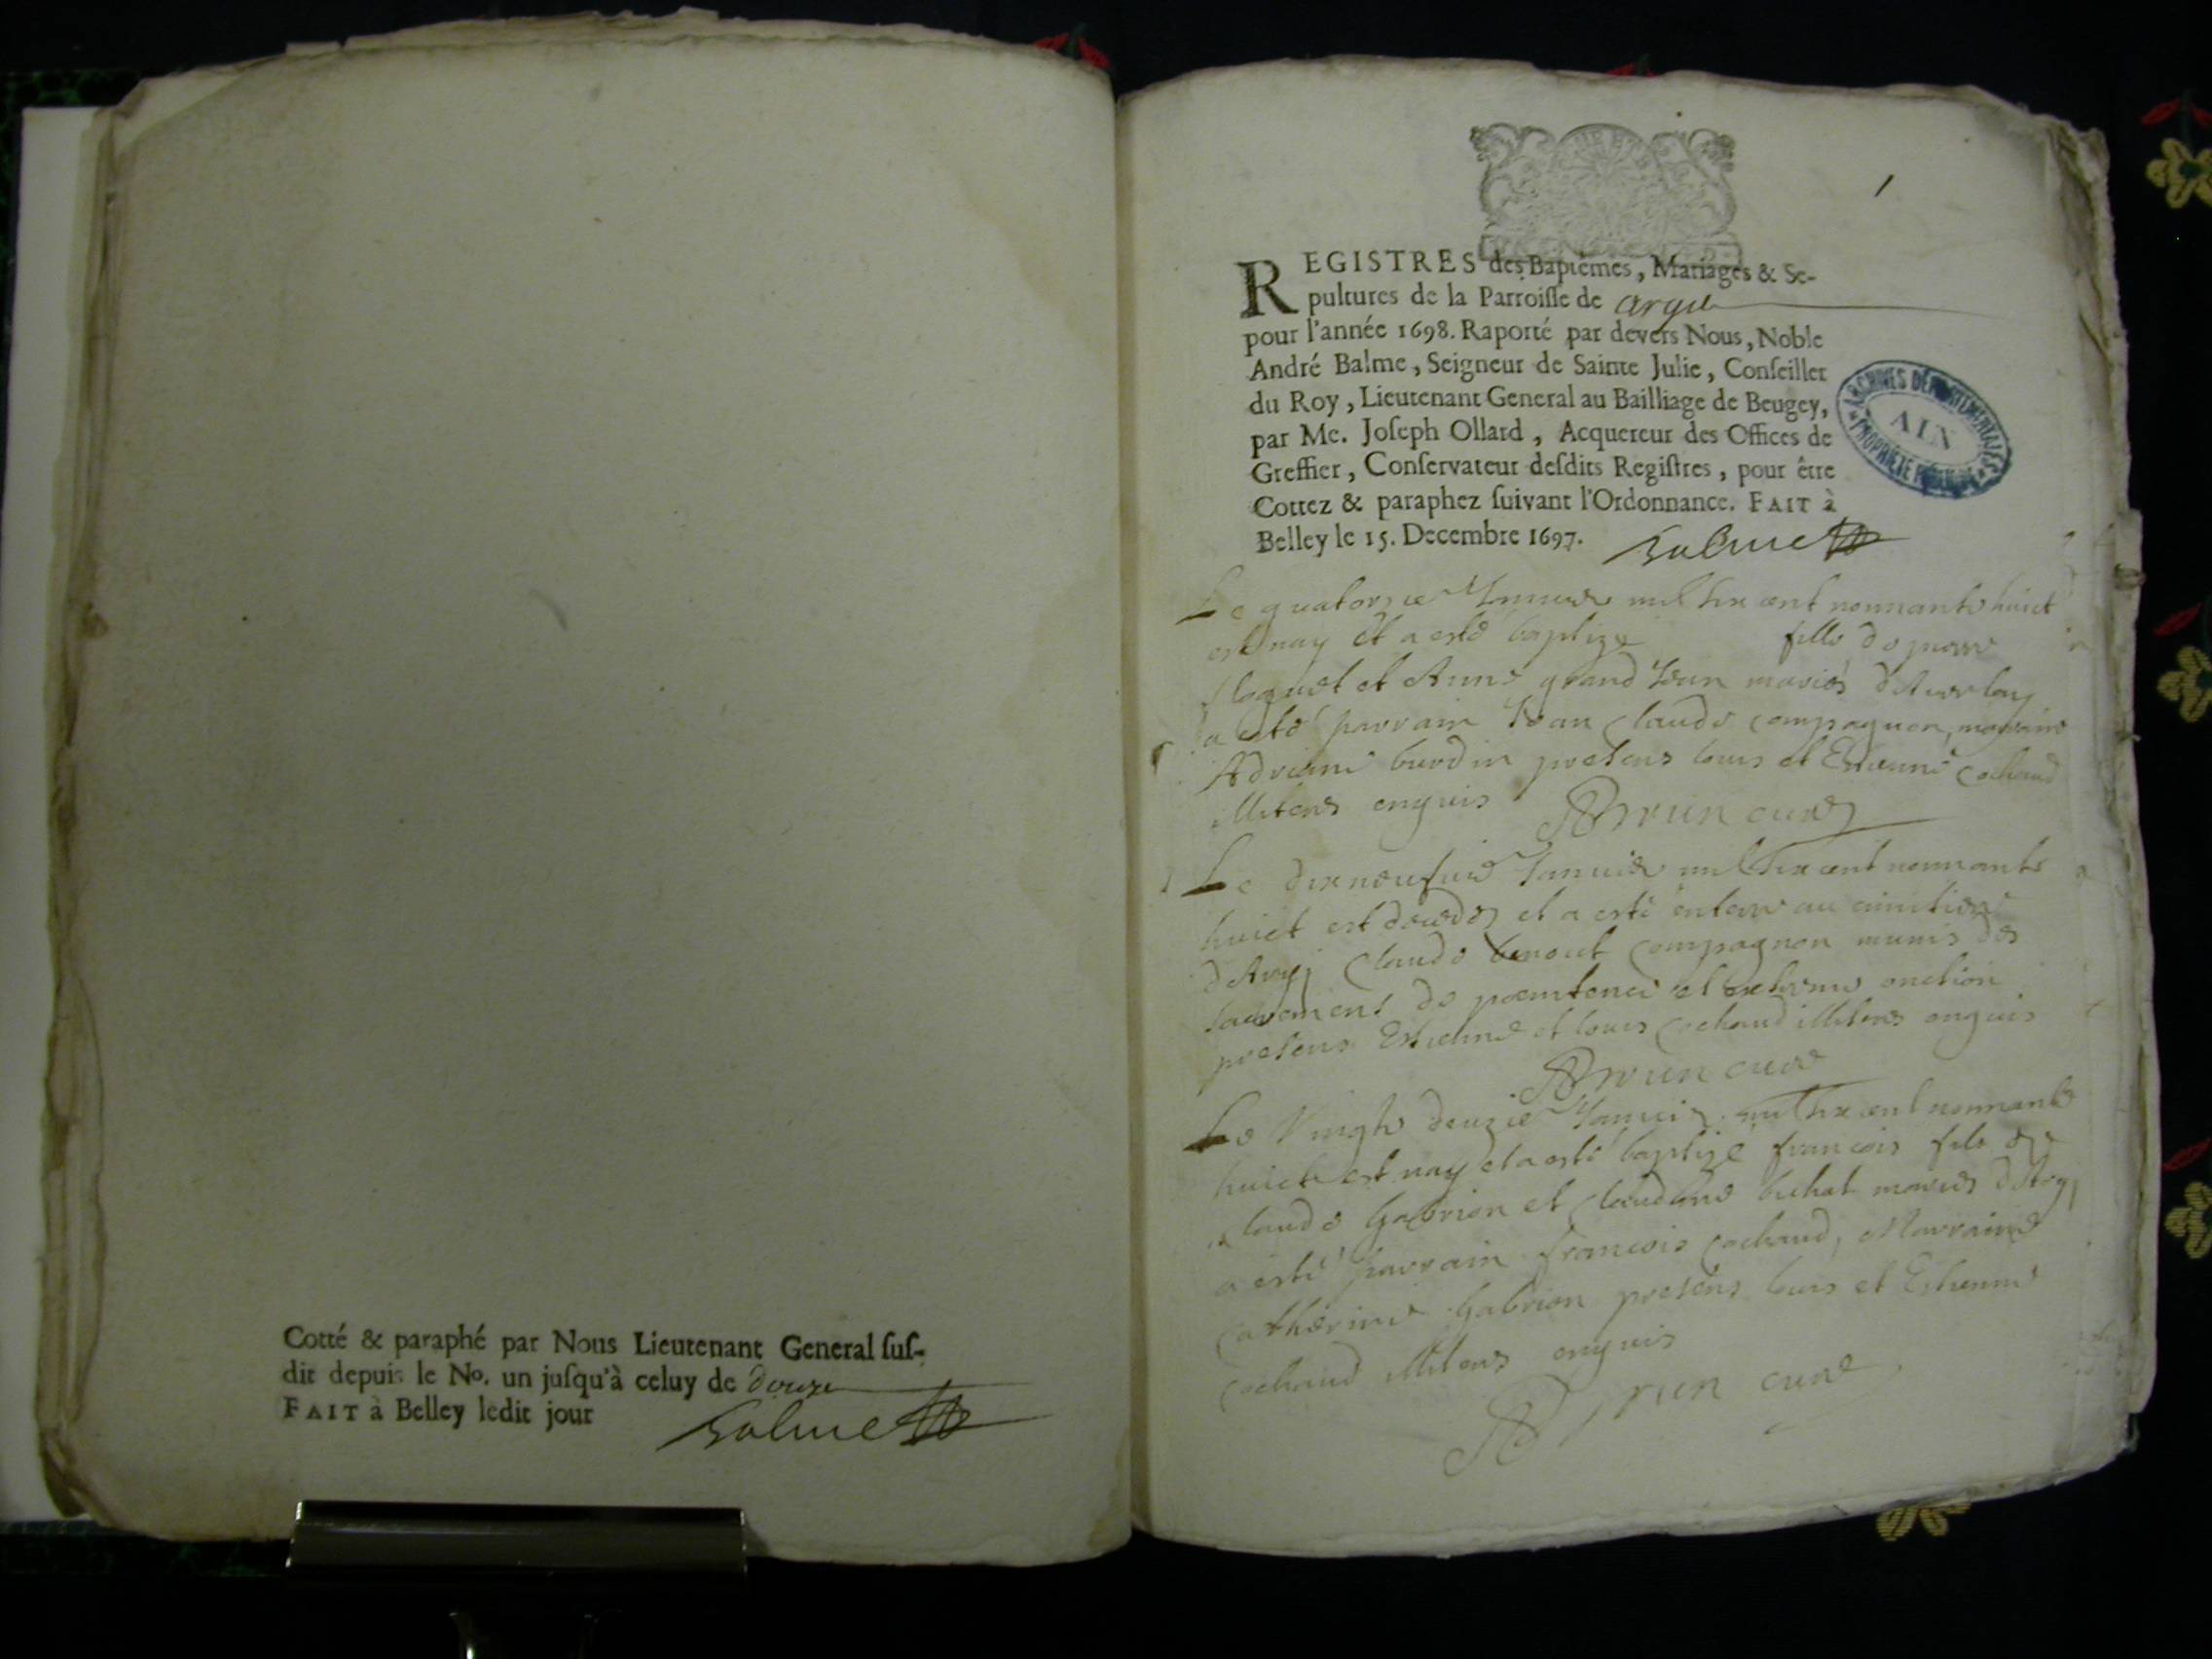 Cotté & paraphé par Nous Lieutenant General suſ-
dit depuis le No. un juſqu'à celuy de douze
FAIT à Belley ledit jour
Balme
1
REGISTRES des Baptêmes, Mariages & Se-
pultures de la Parroiſſe de Argis
pour l'année 1698. Raporté par devers Nous, Noble
André Balme, Seigneur de Sainte Julie, Conſeiller
du Roy, Lieutenant General au Bailliage de Beugey,
par Me. Joſeph Ollard, Acquereur des Offices de
Greffier, Conſervateur deſdits Regiſtres, pour être
Cottez & paraphez ſuivant l'Ordonnance. FAIT à
Belley le 15. Decembre 1697.
Balme
ARCHIVES DÉPARTEMENTALES
AIN
PROPRIÉTÉ PUBLIQUE
Le quatorzie Januier mil six cent nonnante huict
est nay et a esté baptizé fille de
et Anne grand Jean mariés
a esté parrain Jean Claude compagnon, marraine
Adriane burdin presens louis et Estienne cochaud
illiteres enquis
ABrun curé
Le dixneufuie Januier mil six cent nonnante
huict est decedez et a esté enterré au cimitiere
d'Argi Claude benoit compagnon munis des
sacremens de poenitence et extreme onction
presens Estienne et louis cochaud illiteres enquis
ABrun curé
Le Vingte deuzie Januier mil six cent nonnante
huict est nay et a esté baptizé francois fils de
claude Gabrion et Claudine buhat mariés d'Argi
a esté parrain francois cochaud, Marraine
catherine Gabrion presens louis et Estienne
cochaud illiteres enquis
ABrun curé